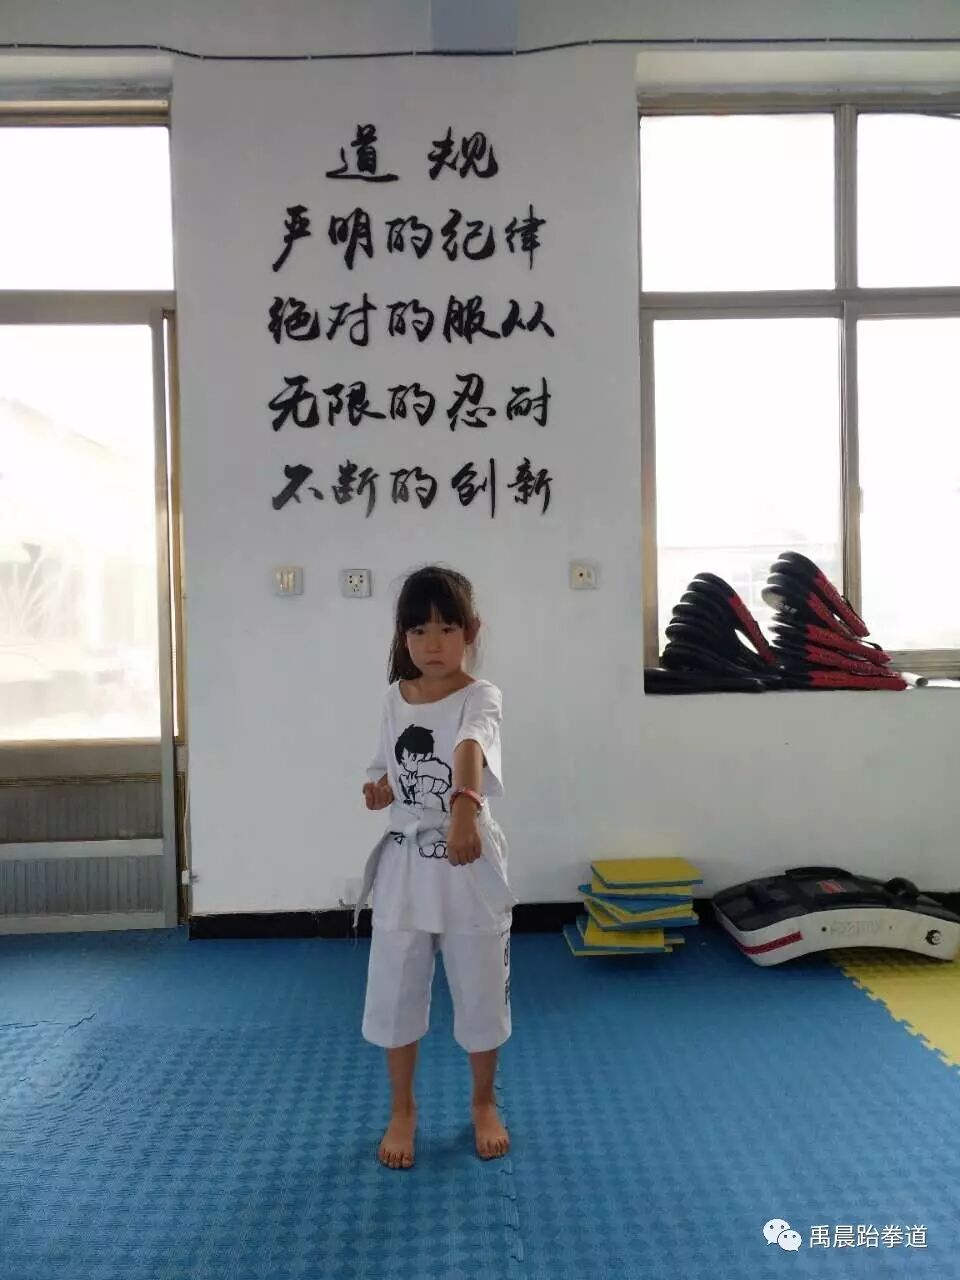 道 规
严明的纪律
绝对的服从
无限的忍耐
不断的创新
禹晨跆拳道